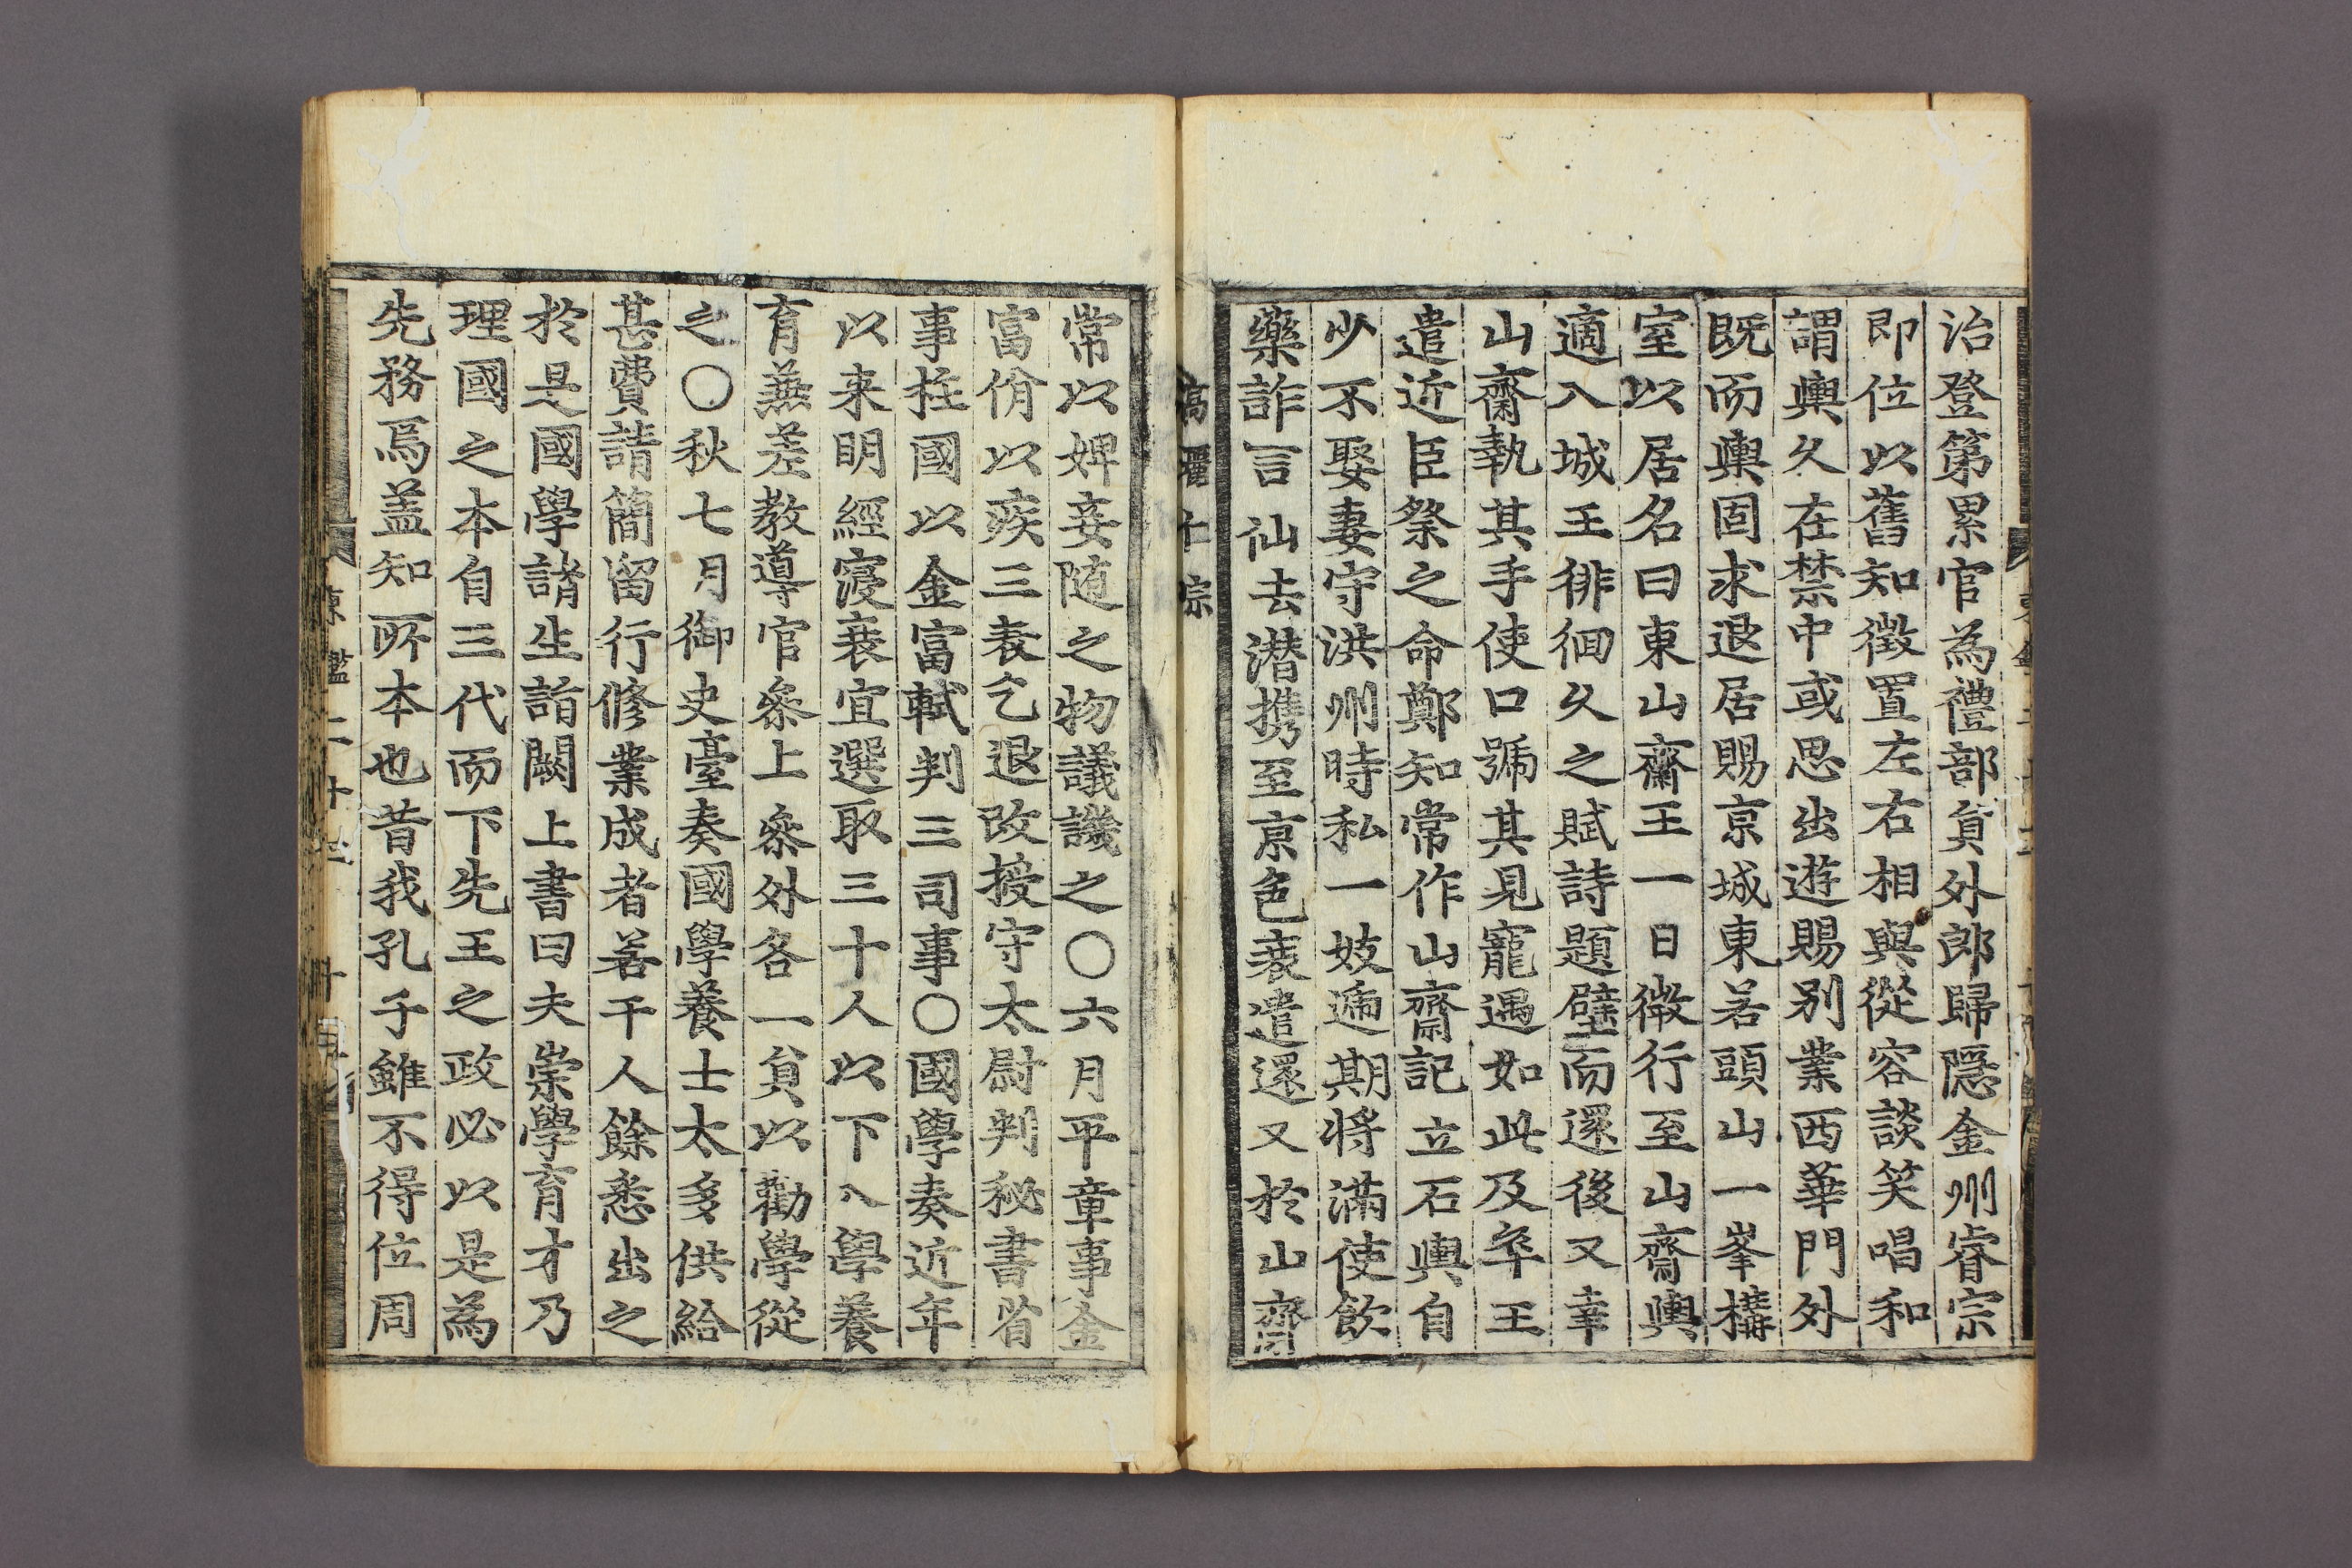 治登第累官為禮部貟外郎歸隱金州睿宗
即位以舊知徵置左右相與從容談笑唱和
謂輿久在禁中或思出遊賜别業西華門外
既而輿固求退居賜京城東若頭山一峯構
室以居名曰東山齋王一日微行至山齋輿
適入城王徘徊久之賦詩題壁而還後又幸
山齋執其手使口號其見寵遇如此及卒王
遣近臣祭之命鄭知常作山齋記立石輿自
少不娶妻守洪州時私一妓逓期将滿使飲
藥詐言仙去潜携至京色衰遣還又於山齋
高麗 宗
常以婢妾随之物議譏之〇六月平章事金
富佾以疾三表乞退改授守太尉判秘書省
事柱國以金富軾判三司事〇國學奏近年
以来明經寖衰宜選取三十人以下入學養
育兼差教導官叅上叅外各一貟以勸學從
之〇秋七月御史臺奏國學養士太多供給
甚費請簡留行修業成者若干人餘悉出之
於是國學諸生詣闕上書曰夫崇學育才乃
理國之本自三代而下先王之政必以是為
先務焉盖知所本也昔我孔子雖不得位周
鑑二十